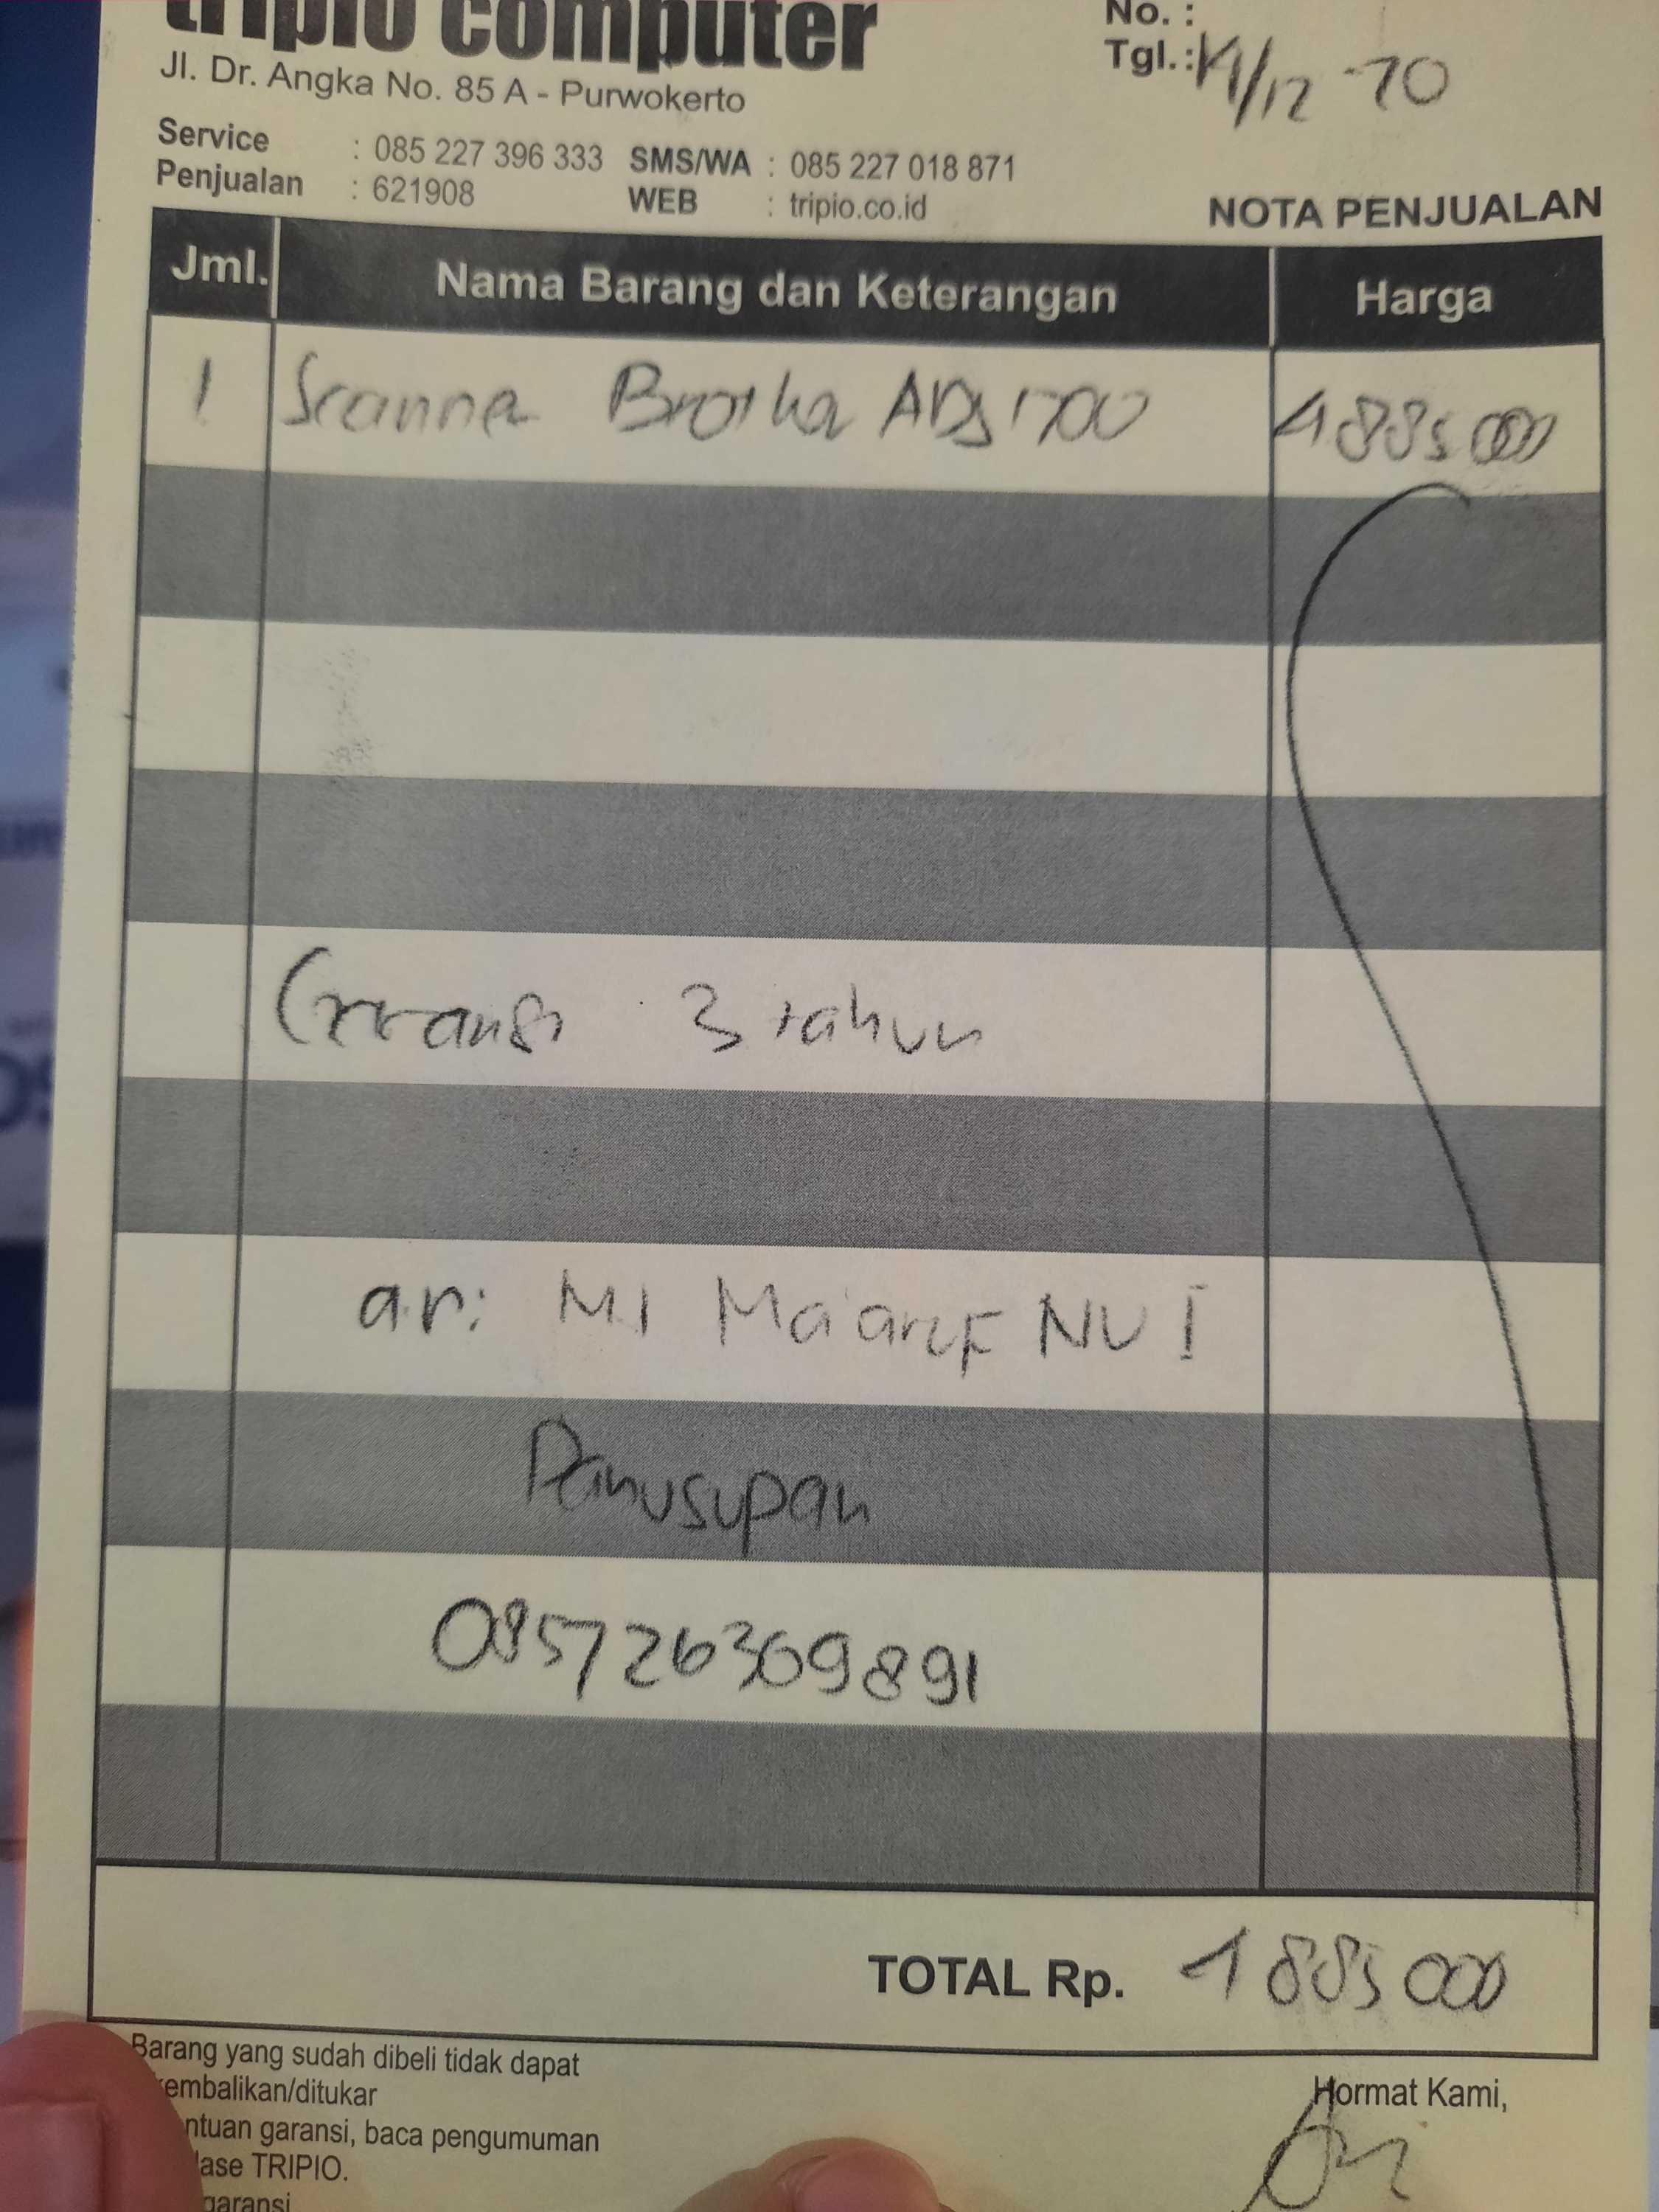 tripio computer
No. :
Jl. Dr. Angka No. 85 A - Purwokerto
Tgl.: /12 -
Service : 085 227 396 333 SMS/WA : 085 227 018 871
Penjualan : 621908 WEB : tripio.co.id
NOTA PENJUALAN
Jml. Nama Barang dan Keterangan Harga
1 Scanner Brother ADS 1700 4885000
Garansi 3 tahun
an: MI Ma'arif NU 1
Panusupan
085726309891
TOTAL Rp. 4885000
Barang yang sudah dibeli tidak dapat
kembalikan/ditukar
ntuan garansi, baca pengumuman
lase TRIPIO.
garansi
Hormat Kami,